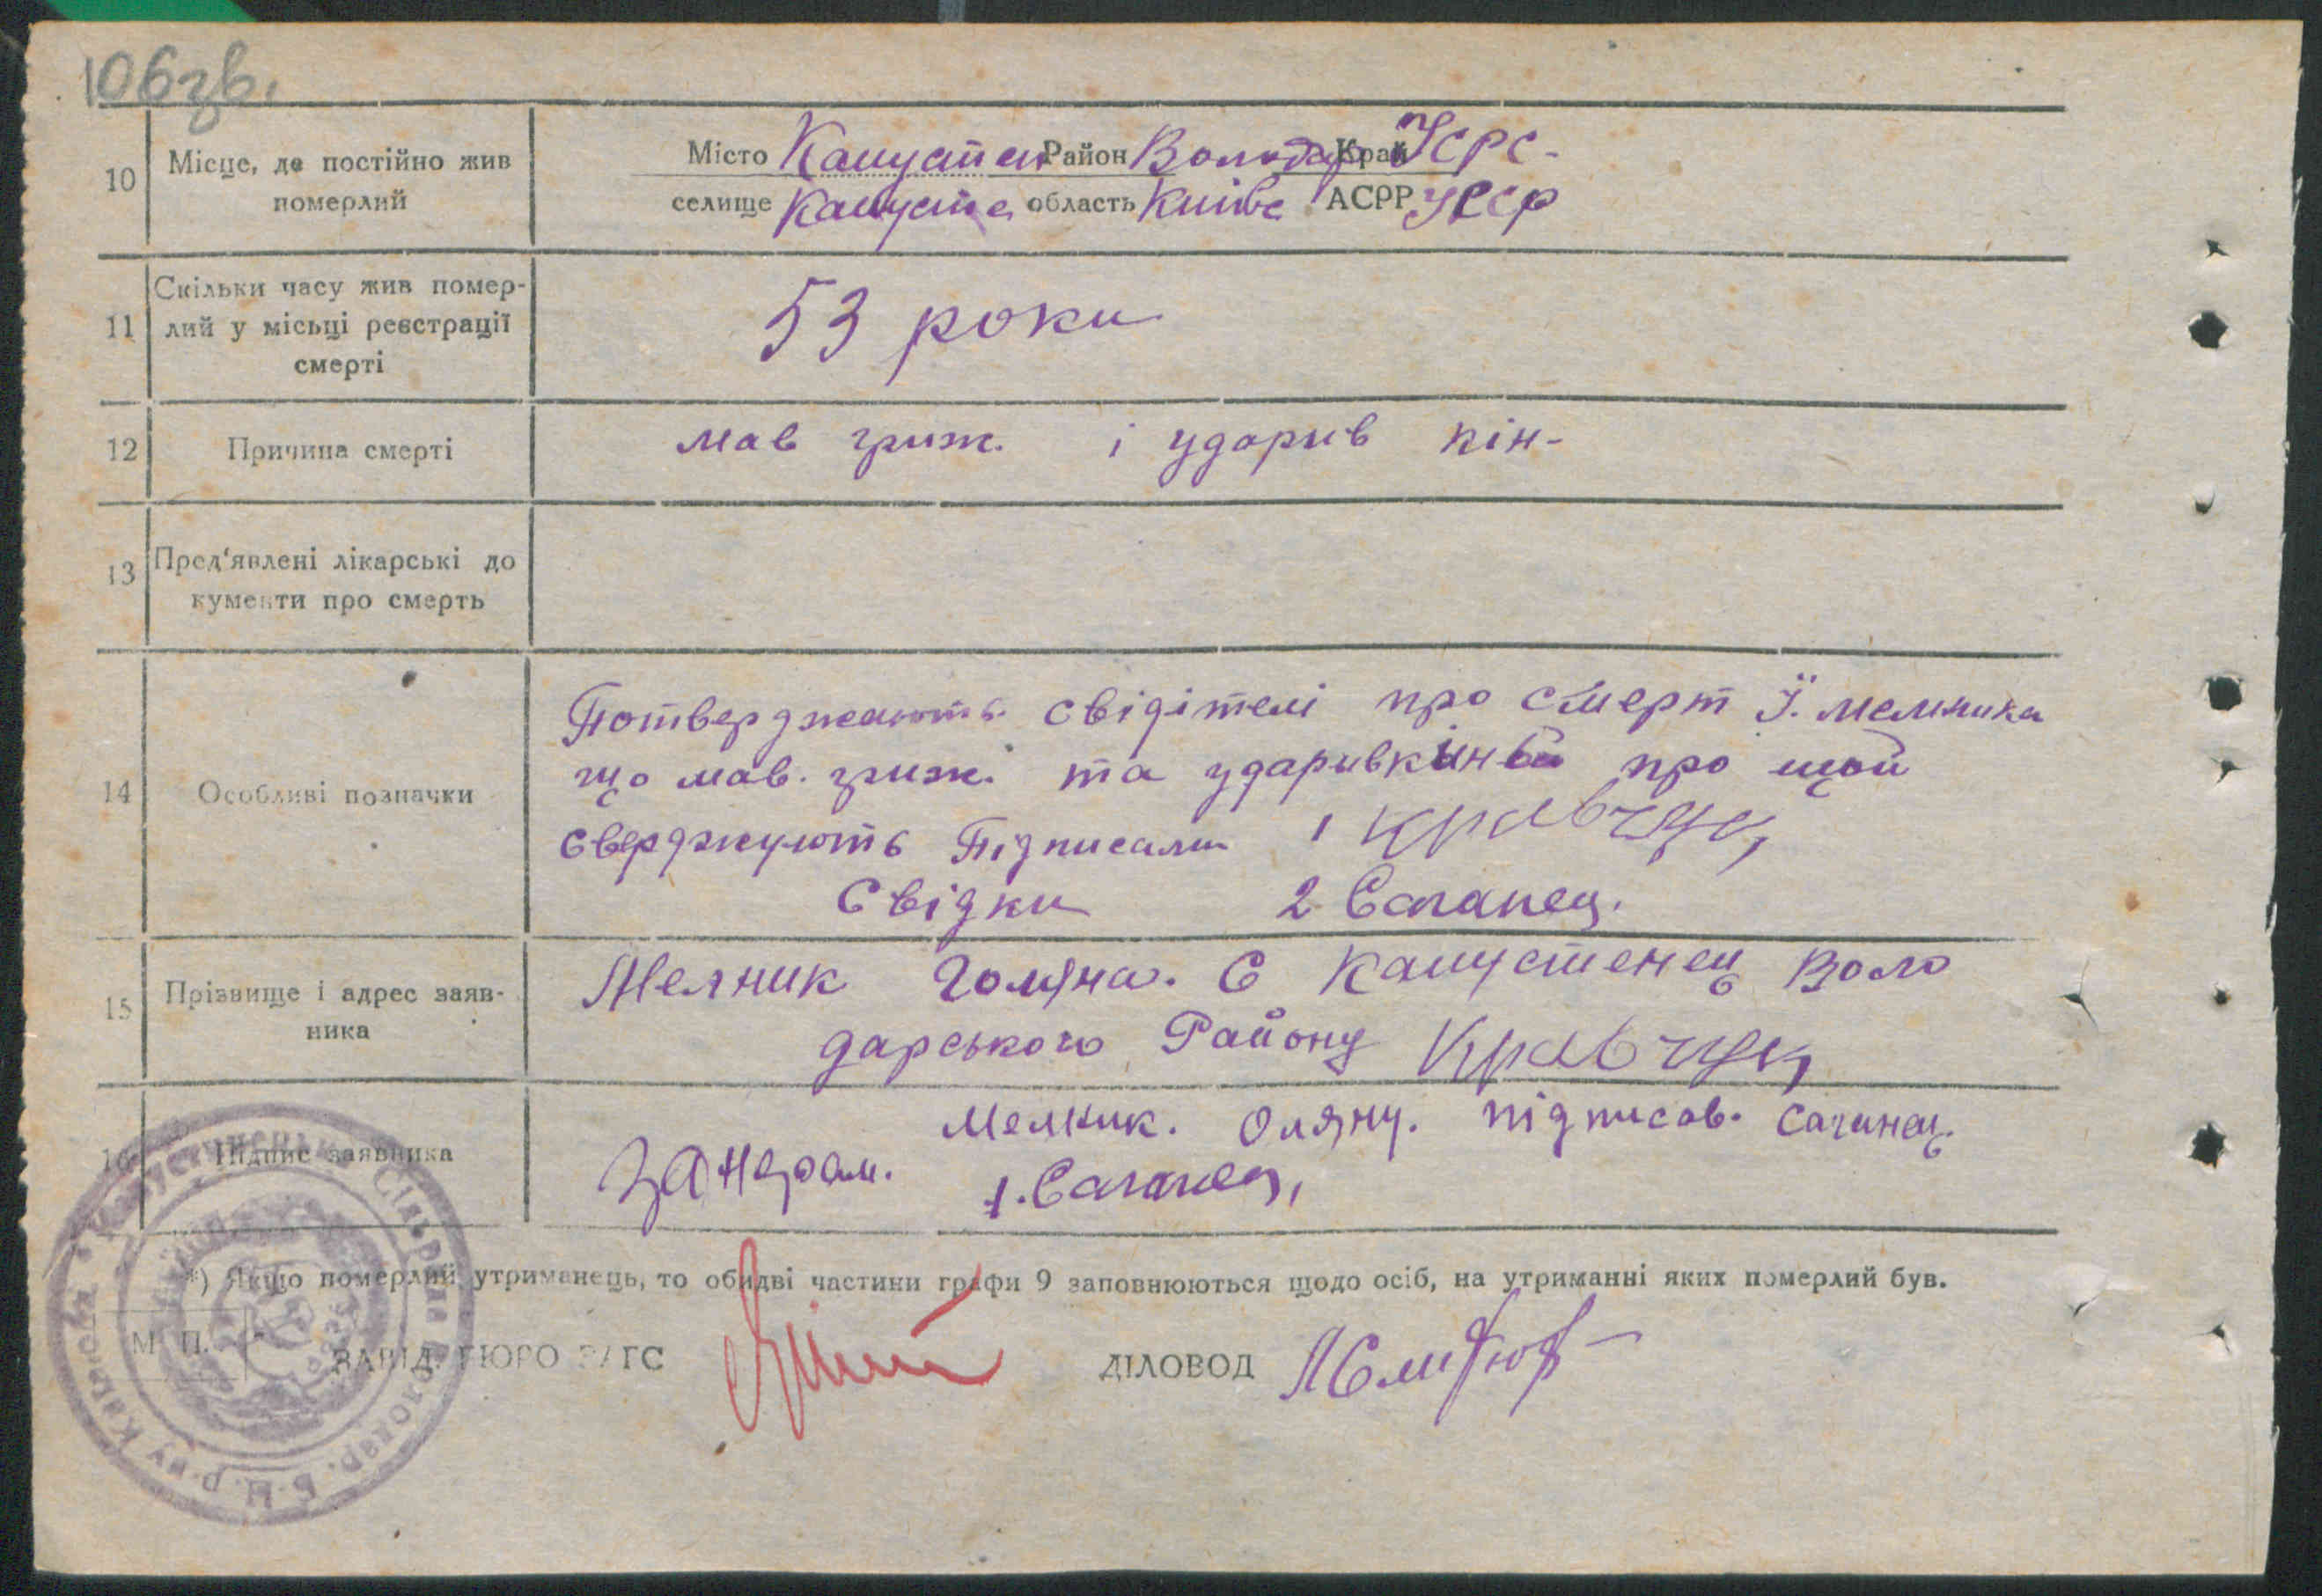 106зв.
10 Місце, де постійно жив померлий
Місто Капустен Район Володар Край УСРС-
селище Капусте область Київс АСРР УССР
11 Скільки часу жив помер-
лий у місьці реєстрації
смерті
53 роки
12 Причина смерті
мав гриж. і ударив кін-
13 Пред'явлені лікарські до
кументи про смерть
14 Особливі позначки
Потверджають свідітелі про смерт Ї. мелника
що мав. гриж. та ударив кінь про щой
сверджують Підписали 1 Кравчук
Свідки 2 Саганец.
15 Прізвище і адрес заяв-
ника
Мелник Голяна. С Капустенец Воло
дарського Району Кравчук
16 Підпис заявника
Мелник. Оляну. підписав. Саганец.
За неграм. 1. Саганец,
*) Якщо померлий утриманець, то обидві частини графи 9 заповнюються щодо осіб, на утриманні яких померлий був.
М. П.
ЗАВІД. БЮРО ЗАГС ДІЛОВОД
Капустинська Сільрада Володар. Б.Ц. р-ну